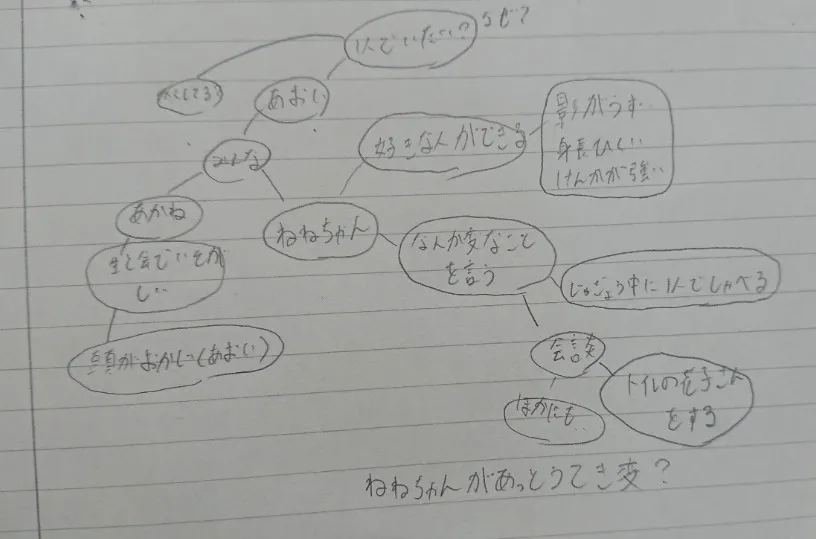 1人でいたい?
なぜ?
かくしてる?
あおい
みんな
好きな人ができる
影がうすい
身長ひくい
けんかが強い
あかね
ねねちゃん
なんか変なこと
を言う
生と会でいそが
しい
じゅぎょう中に1人でしゃべる
頭がおかしい(あおい)
会談
トイレの花子さん
をする
ほかにも..
ねねちゃんがあっとうてき変?